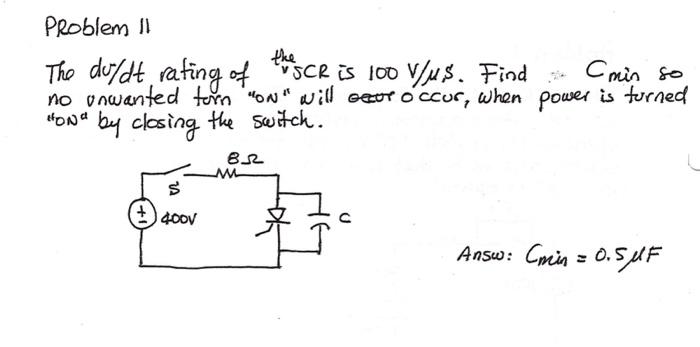 Problem 11
The dv/dt rating of the SCR is 100 V/μs. Find Cmin so
no unwanted turn "ON" will occur, when power is turned
"ON" by closing the switch.
8Ω
S
+
400V
C
Answ: Cmin = 0.5 μF